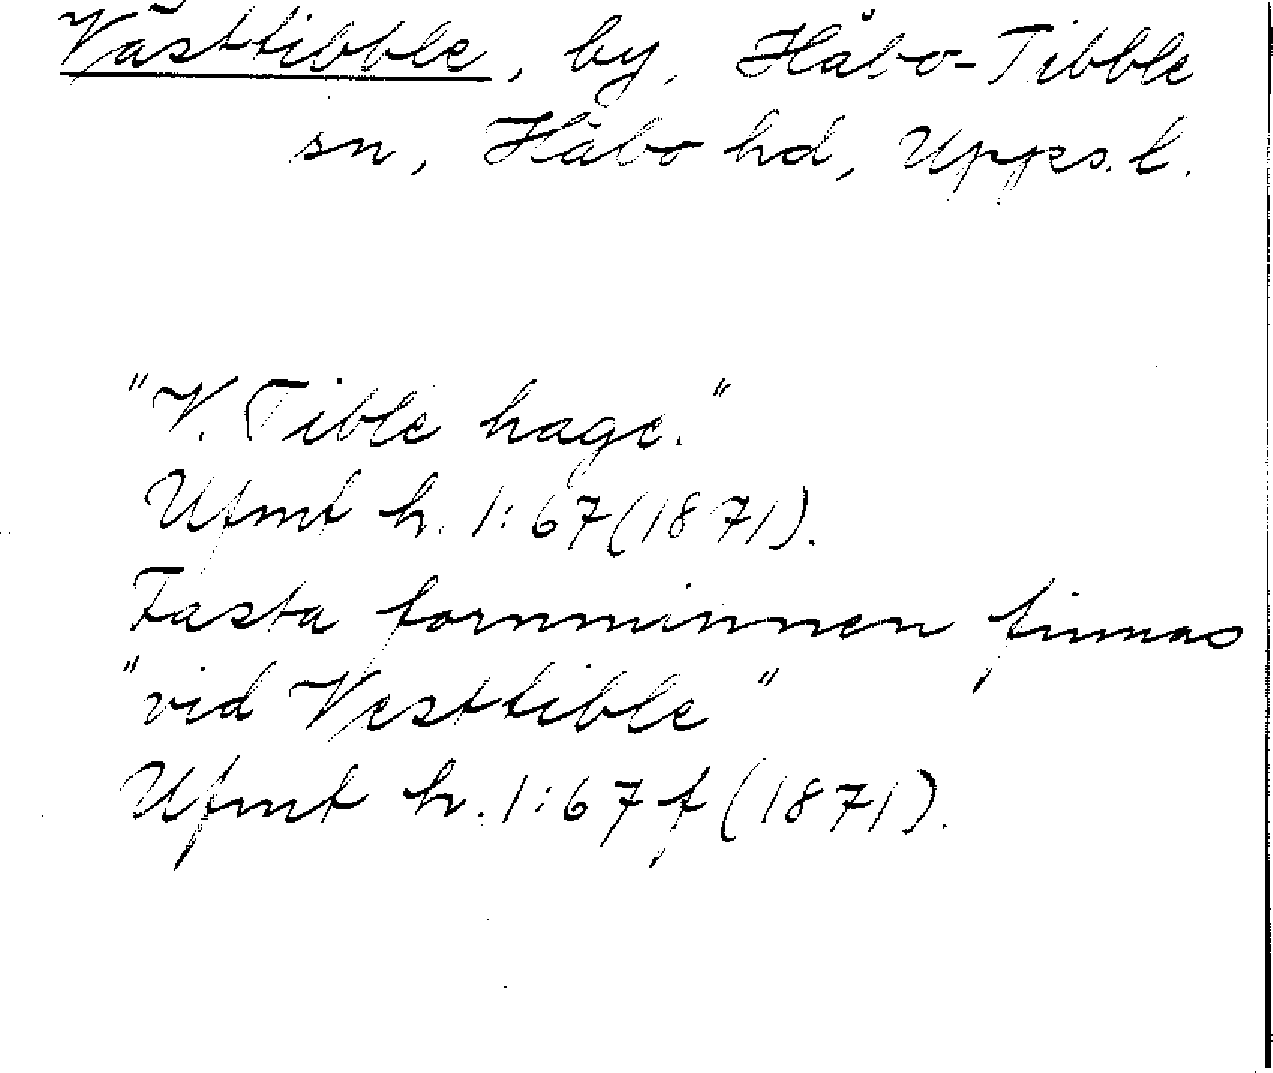 Västtibble, by, Håbo-Tibble
sn, Håbo hd, Upps. l.
"V. Tible hage."
Ufmt h. 1:67(1871).
Fasta fornminnen finnas
"vid Vesttible"
Ufmt h. 1:67 f (1871).